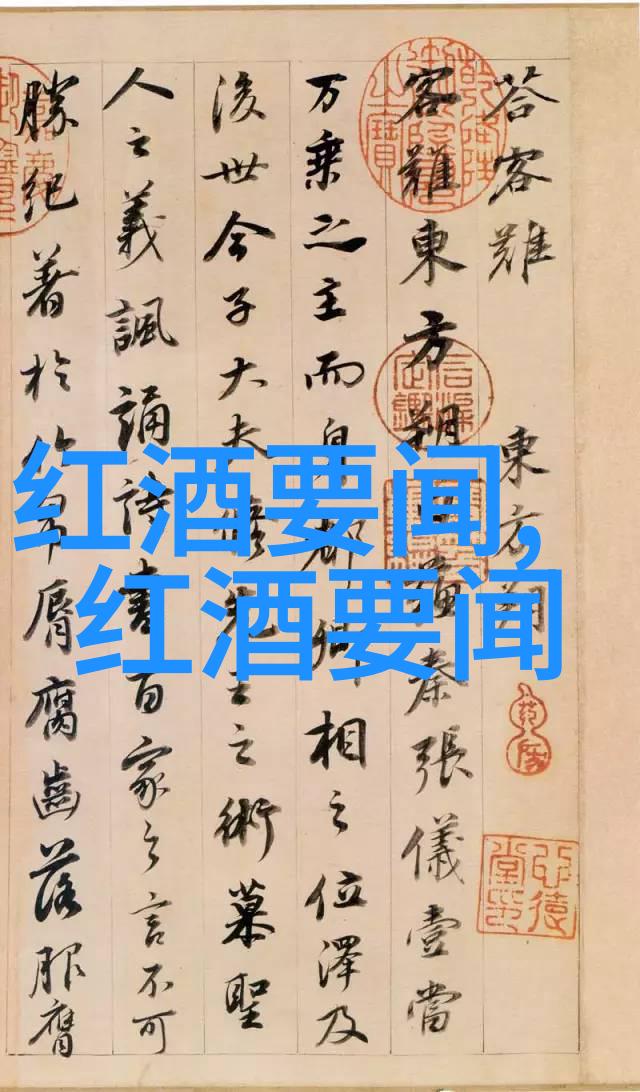 荅客難 東方朔
客難東方朔曰蘇秦張儀壹當
万乘之主而身都卿相之位澤及
後世今子大夫脩先王之術慕聖
人之義諷誦詩書百家之言不可
勝紀著於竹帛脣腐齒落服膺
红酒要闻,
红酒要闻